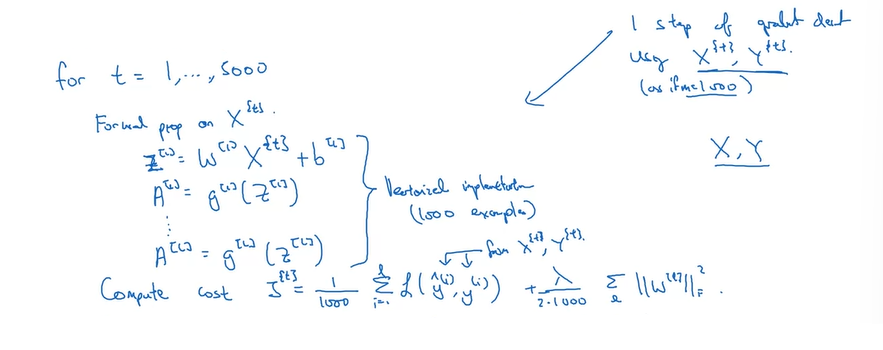 1 step of gradient descent
using X^{t}, Y^{t}.
(as if m=1000)
for t = 1,...,5000
Forward prop on X^{t}.
Z^[1] = W^[1] X^{t} + b^[1]
A^[1] = g^[1](Z^[1])
⋮
A^[L] = g^[L](Z^[L])
Vectorized implementation
(1000 examples)
X, Y
from X^{t}, Y^{t}.
Compute cost J^{t} = 1/1000 Σ_{i=1}^{l} L(ŷ^(i), y^(i)) + λ/(2·1000) Σ_l ||W^[l]||_F^2.